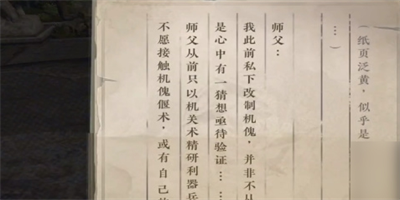 纸页泛黄，似乎是
…）
师父：
我此前私下改制机傀，并非不从
是心中有一猜想亟待验证……
师父从前只以机关术精研利器兵
不愿接触机傀偃术，或有自己的